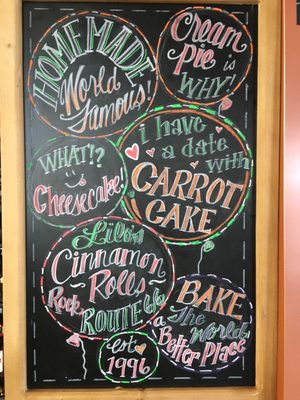 HOMEMADE
World
Famous!
Cream
Pie
is
WHY!
WHAT!?
Cheesecake!
i have
a date
with
CARROT
CAKE
Lilo's
Cinnamon
Rolls
Rock
ROUTE 66
BAKE
The
World
a
Better Place
est.
1996